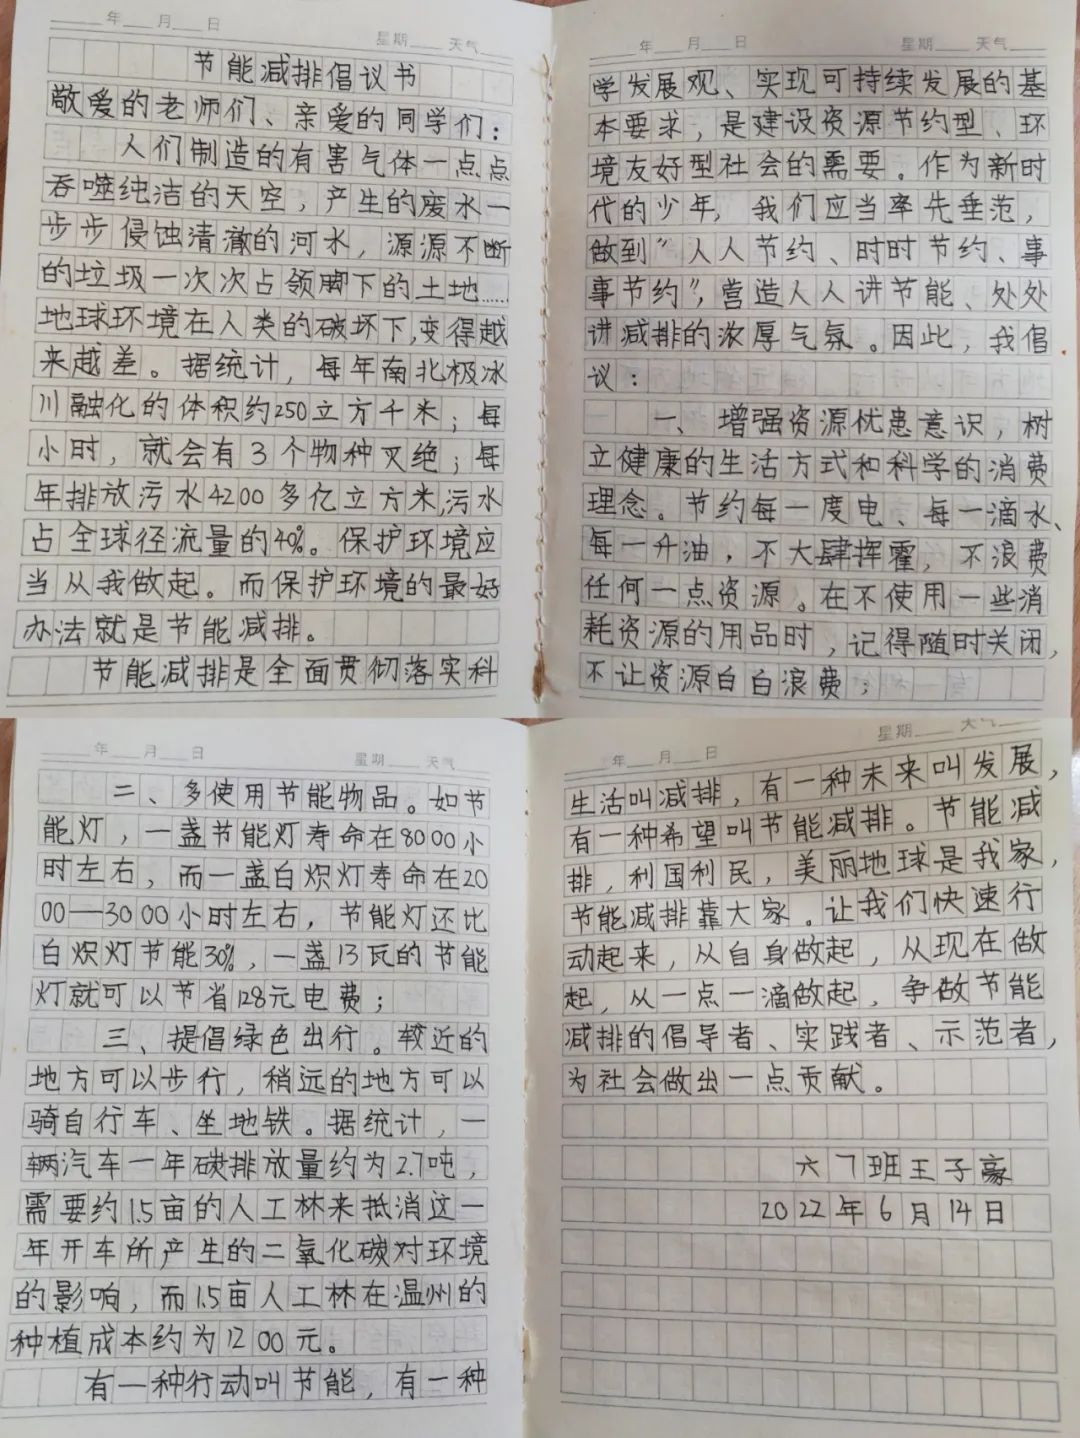 年 月 日
星期 天气
节能减排倡议书
敬爱的老师们、亲爱的同学们：
人们制造的有害气体一点点
吞噬纯洁的天空，产生的废水一
步步侵蚀清澈的河水，源源不断
的垃圾一次次占领脚下的土地……
地球环境在人类的破坏下，变得越
来越差。据统计，每年南北极冰
川融化的体积约250立方千米；每
小时，就会有3个物种灭绝；每
年排放污水4200多亿立方米，污水
占全球径流量的40%。保护环境应
当从我做起。而保护环境的最好
办法就是节能减排。
节能减排是全面贯彻落实科
年 月 日
星期 天气
学发展观、实现可持续发展的基
本要求，是建设资源节约型、环
境友好型社会的需要。作为新时
代的少年，我们应当率先垂范，
做到"人人节约、时时节约、事
事节约"，营造人人讲节能、处处
讲减排的浓厚气氛。因此，我倡
议：
一、增强资源忧患意识，树
立健康的生活方式和科学的消费
理念。节约每一度电、每一滴水、
每一升油，不大肆挥霍，不浪费
任何一点资源。在不使用一些消
耗资源的用品时，记得随时关闭，
不让资源白白浪费；
年 月 日
星期 天气
二、多使用节能物品。如节
能灯，一盏节能灯寿命在8000小
时左右，而一盏白炽灯寿命在20
00—3000小时左右，节能灯还比
白炽灯节能30%，一盏13瓦的节能
灯就可以节省128元电费；
三、提倡绿色出行。较近的
地方可以步行，稍远的地方可以
骑自行车、坐地铁。据统计，一
辆汽车一年碳排放量约为2.7吨，
需要约1.5亩的人工林来抵消这一
年开车所产生的二氧化碳对环境
的影响，而1.5亩人工林在温州的
种植成本约为1200元。
有一种行动叫节能，有一种
年 月 日
星期 天气
生活叫减排，有一种未来叫发展，
有一种希望叫节能减排。节能减
排，利国利民，美丽地球是我家，
节能减排靠大家。让我们快速行
动起来，从自身做起，从现在做
起，从一点一滴做起，争做节能
减排的倡导者、实践者、示范者，
为社会做出一点贡献。
六7班王子豪
2022年6月14日